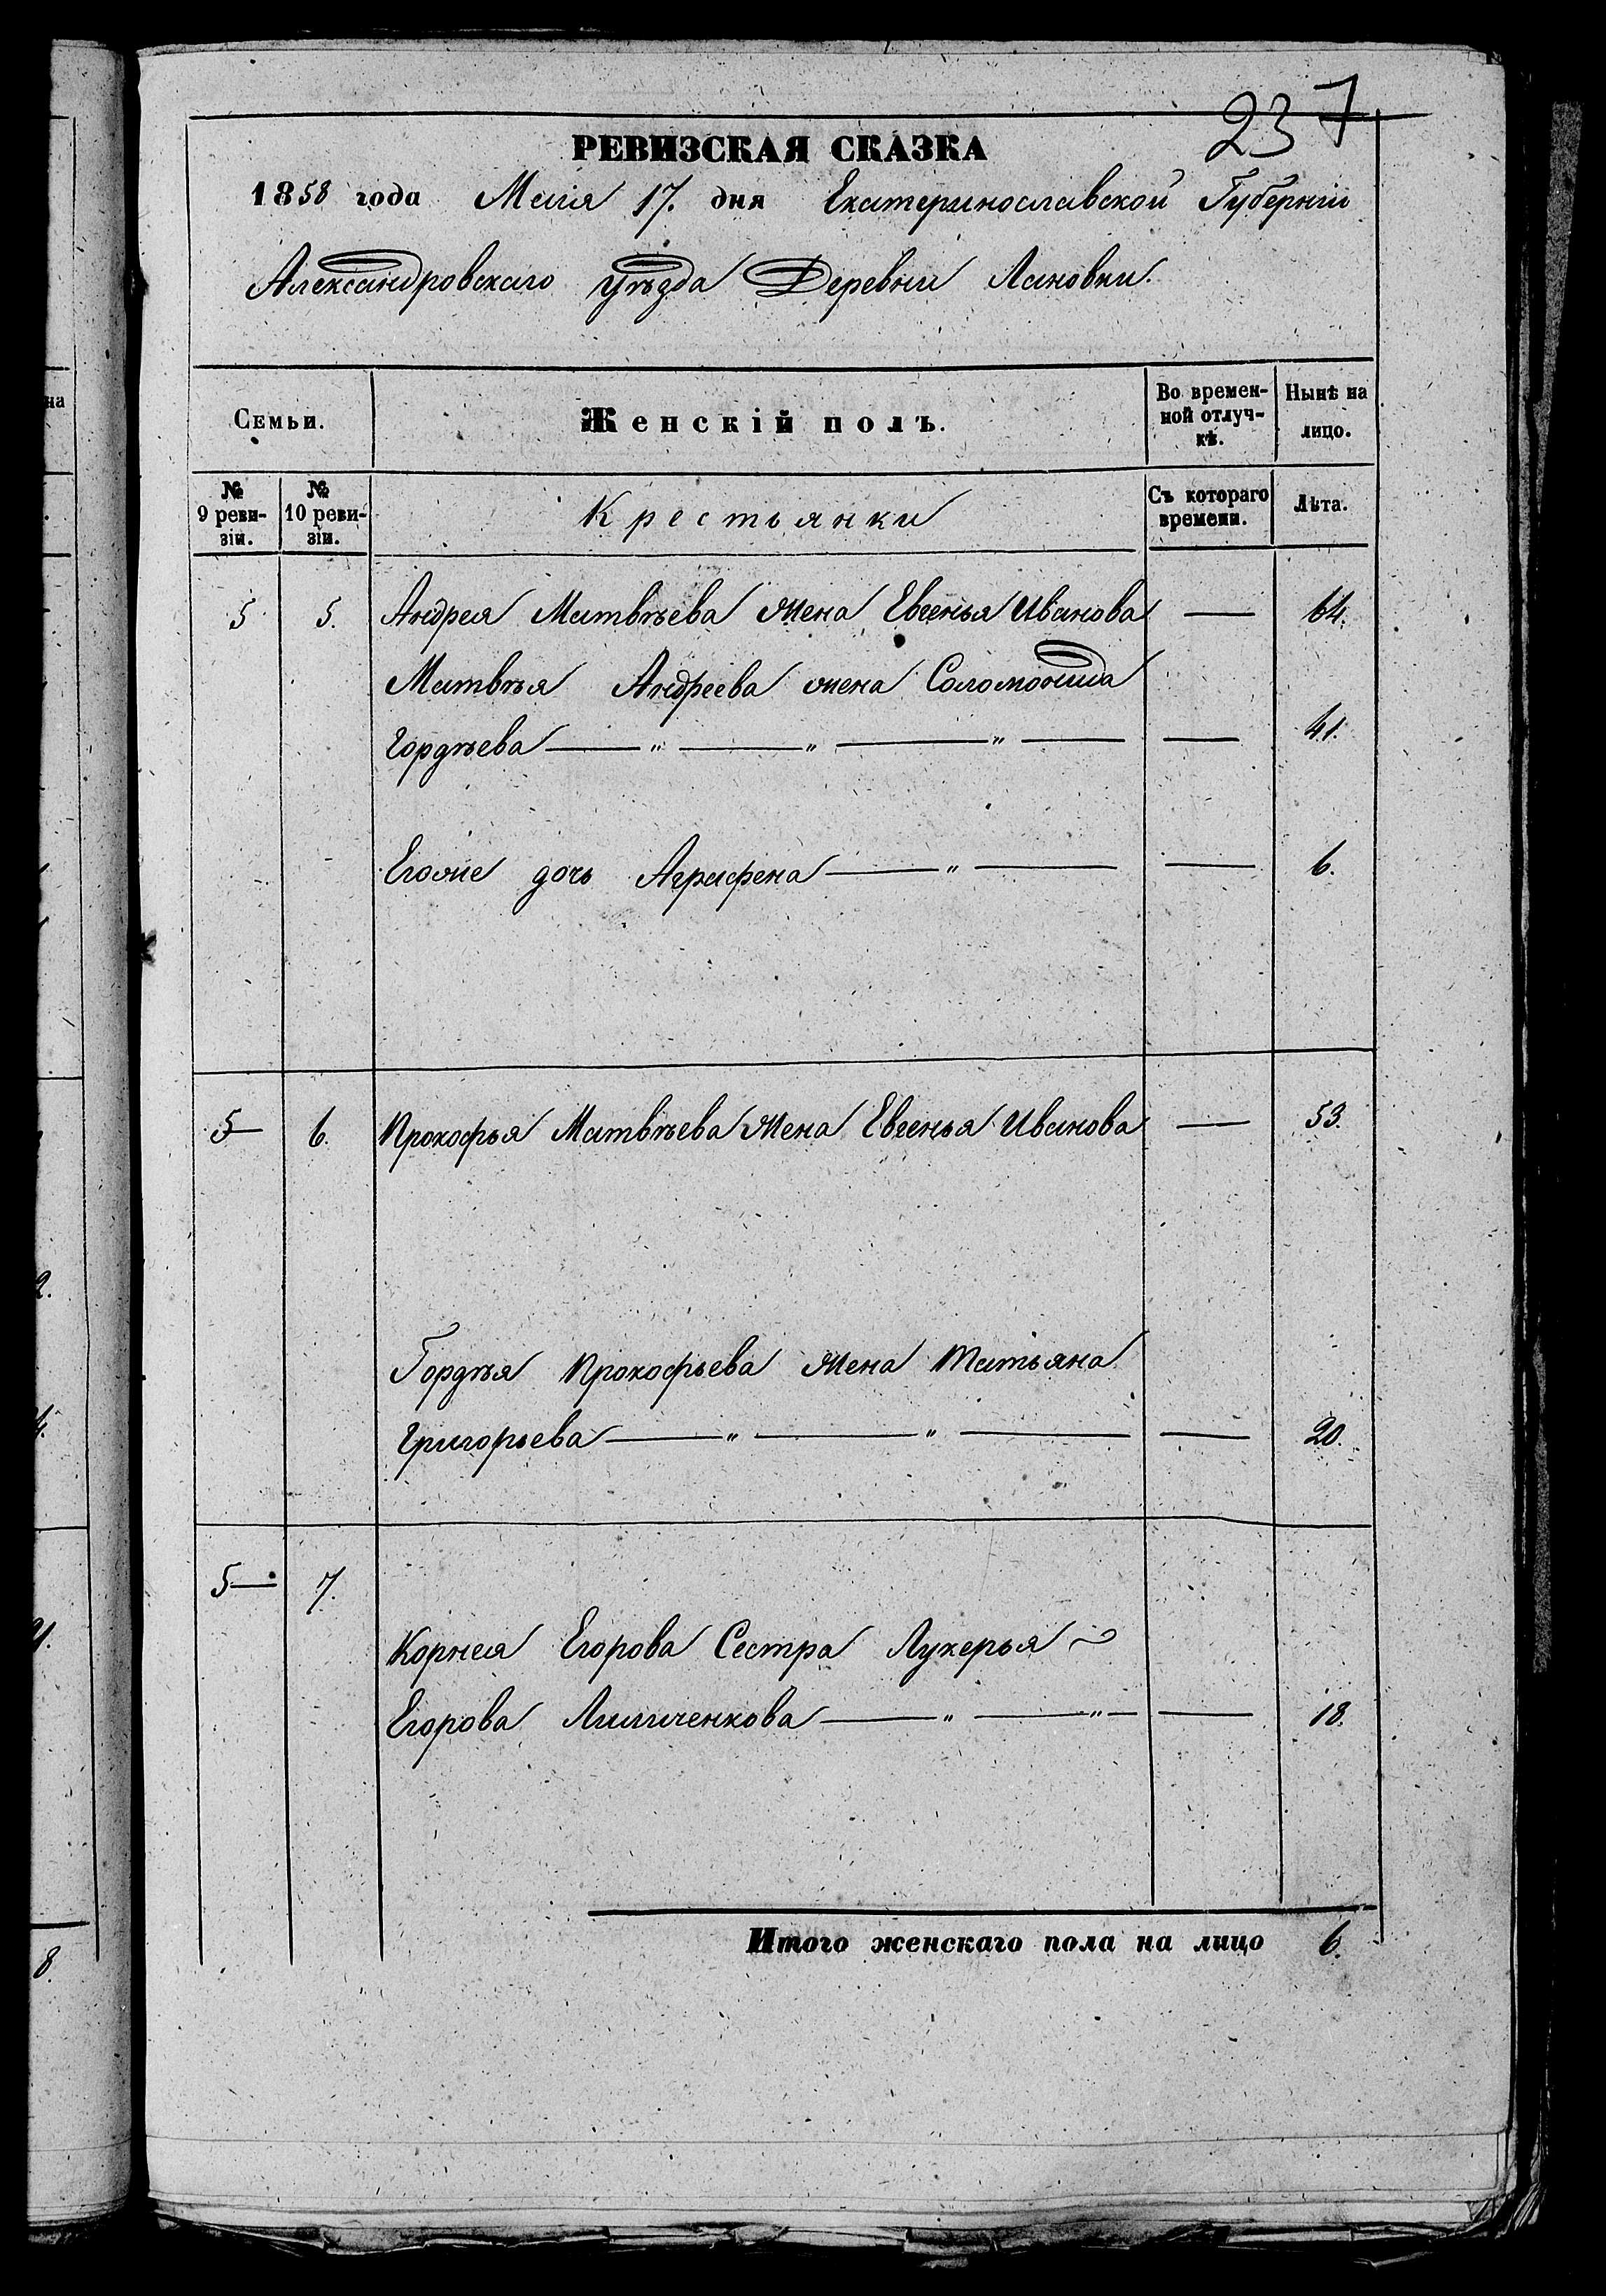 237
РЕВИЗСКАЯ СКАЗКА
1858 года Маія 17. дня Екатеринославской Губерніи
Александровскаго уѣзда Деревни
на
Семьи.
Женскій полъ.
Во времен-
ной отлуч-
кѣ.
Нынѣ на
лицо.
№
9 реви-
зіи.
№
10 реви-
зіи.
Крестьянки
Съ котораго
времени.
Лѣта.
5 5. Андрея Матвѣева жена Евгенья Иванова — 64.
Матвѣя Андреева жена Соломонида
Гордѣева — „ — „ — „ — — 41.
Егоже дочь Аграфена — „ — — 6.
5— 6. Прокофья Матвѣева жена Евгенья Иванова — 53.
Гордѣя Прокофьева жена Татьяна
Григорьева — „ — „ — — 20.
5— 7.
Корнея Егорова Сестра Лукерья
Егорова — „ — „ — — 18.
Итого женскаго пола на лицо 6.
8.